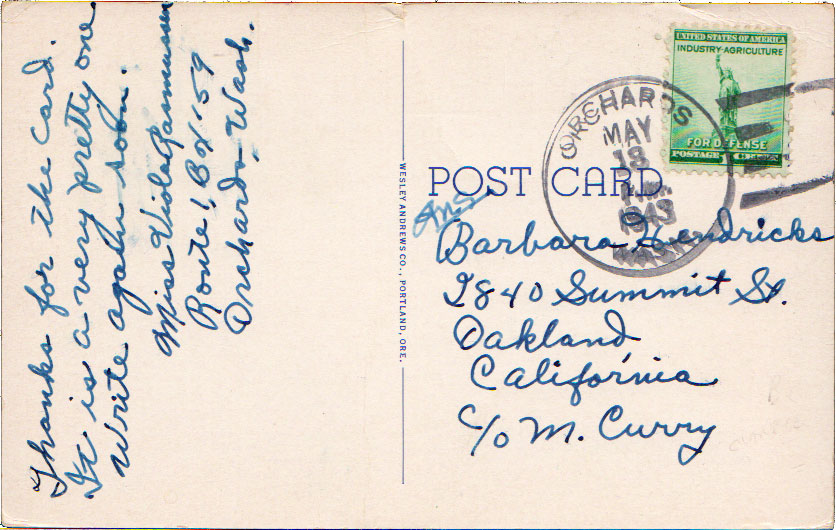 Thanks for the card.
It is a very pretty one
Write again soon.
Miss Viola Rasmussen
Route 1, Box 159
Orchards, Wash.
WESLEY ANDREWS CO., PORTLAND, ORE.
UNITED STATES OF AMERICA
INDUSTRY·AGRICULTURE
FOR DEFENSE
POSTAGE
ORCHARDS
MAY
13
P.M.
1943
WASH.
POST CARD
Ans
Barbara Hendricks
2840 Summit St.
Oakland
California
c/o M. Curry